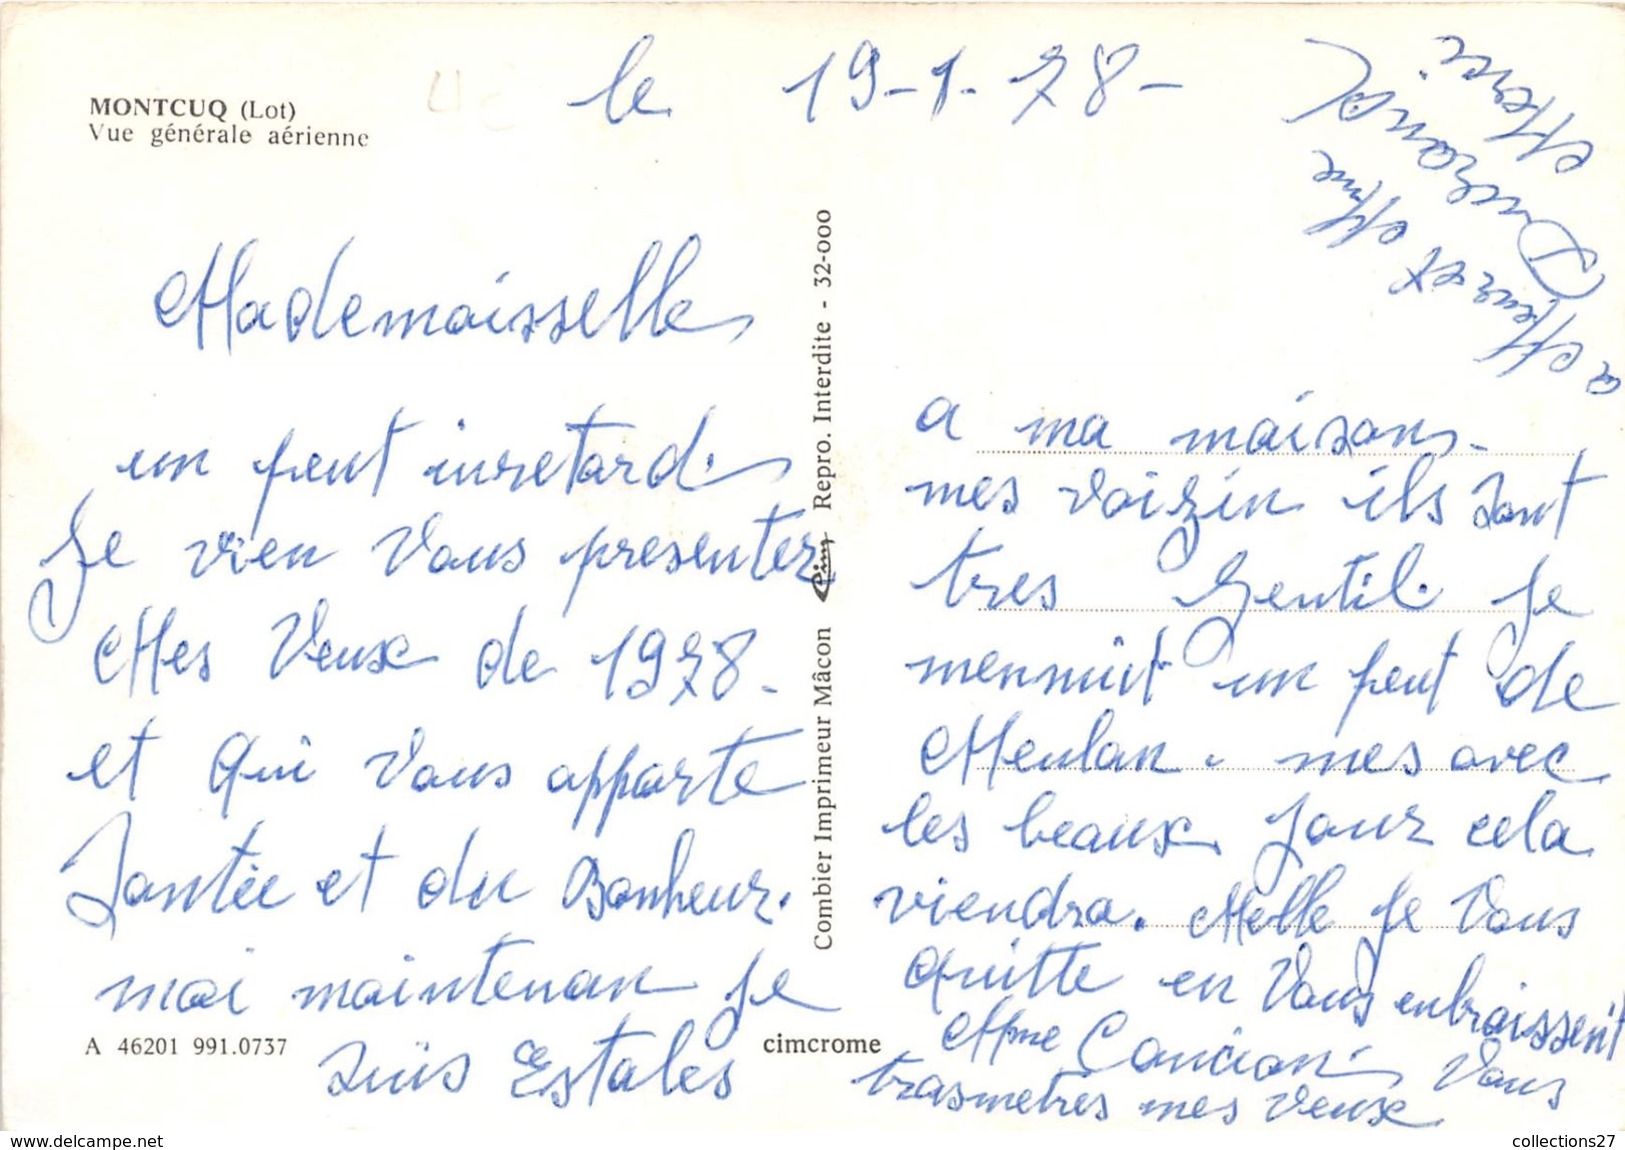 MONTCUQ (Lot)
Vue générale aérienne
le 19-1.78-
Mademoisselle
un peut inretard.
Je vien vous presenter
Mes Veux de 1978-
et qui vous apporte
Santée et du Bonheur.
moi maintenan je
suis Estales
a ma maison-
mes voizin ils sont
tres gentil. Je
mennuit un peut de
Meulan. mes avec
les beaux jour cela
viendra. Melle Je Vous
quitte en Vous enbraissent
Mme Cancian Vous
trasmetres mes veux
a Meur et Mme
Durand
Merci
Combier Imprimeur Mâcon Cim Repro. Interdite - 32-000
A 46201 991.0737
cimcrome
www.delcampe.net
collections27